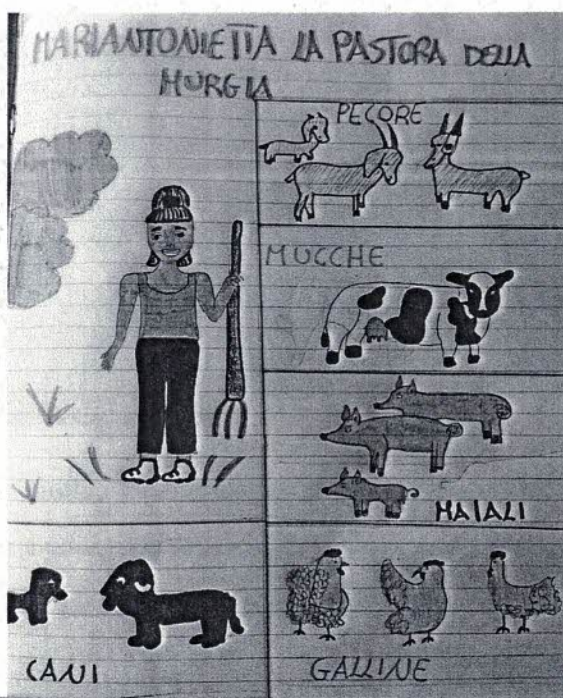 MARIANTONIETTA LA PASTORA DELLA
MURGIA
PECORE
MUCCHE
MAIALI
CANI
GALLINE